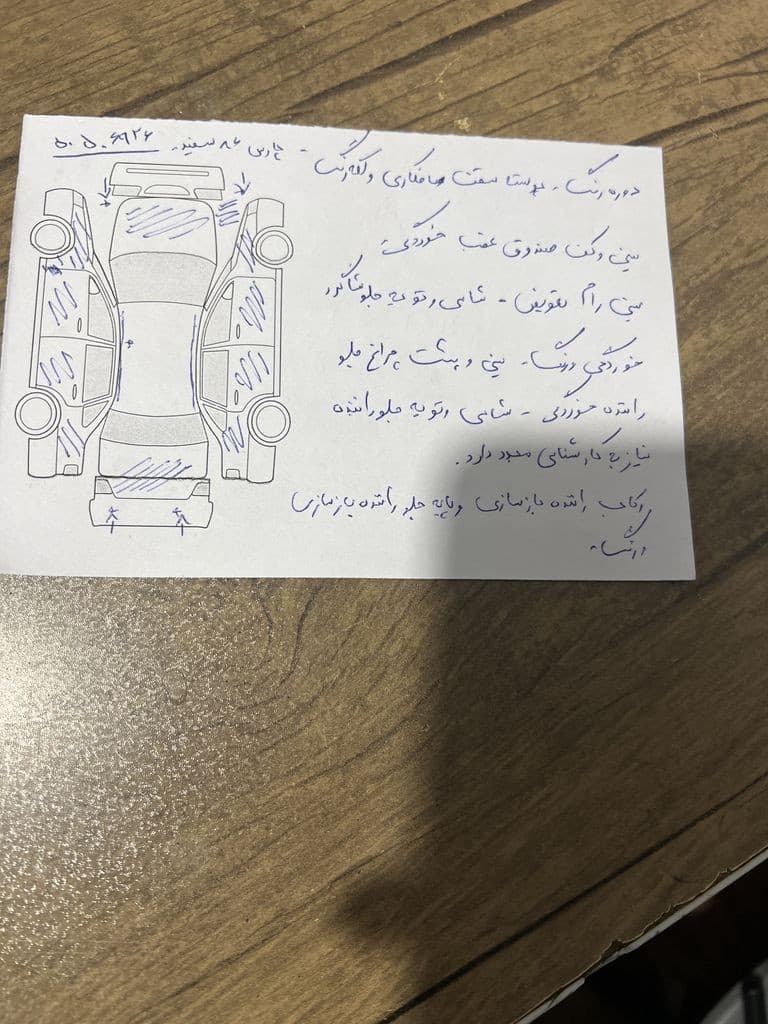 پارس ۸۶ سفید. ۵۰۵۰۶۹۲۶
دوره رنگ. پوستا سقف صافکاری و لکه رنگ -
سینی و کف صندوق عقب خوردگی
سینی رام تعویض - شاسی و تویه جلو شاگرد
خوردگی و رنگ. سینی و پشت چراغ جلو
راننده خوردگی - شاسی و تویه جلو راننده
نیاز به کارشناسی مجدد دارد.
رکاب راننده بازسازی و پایه جلو راننده بازسازی
و رنگ.